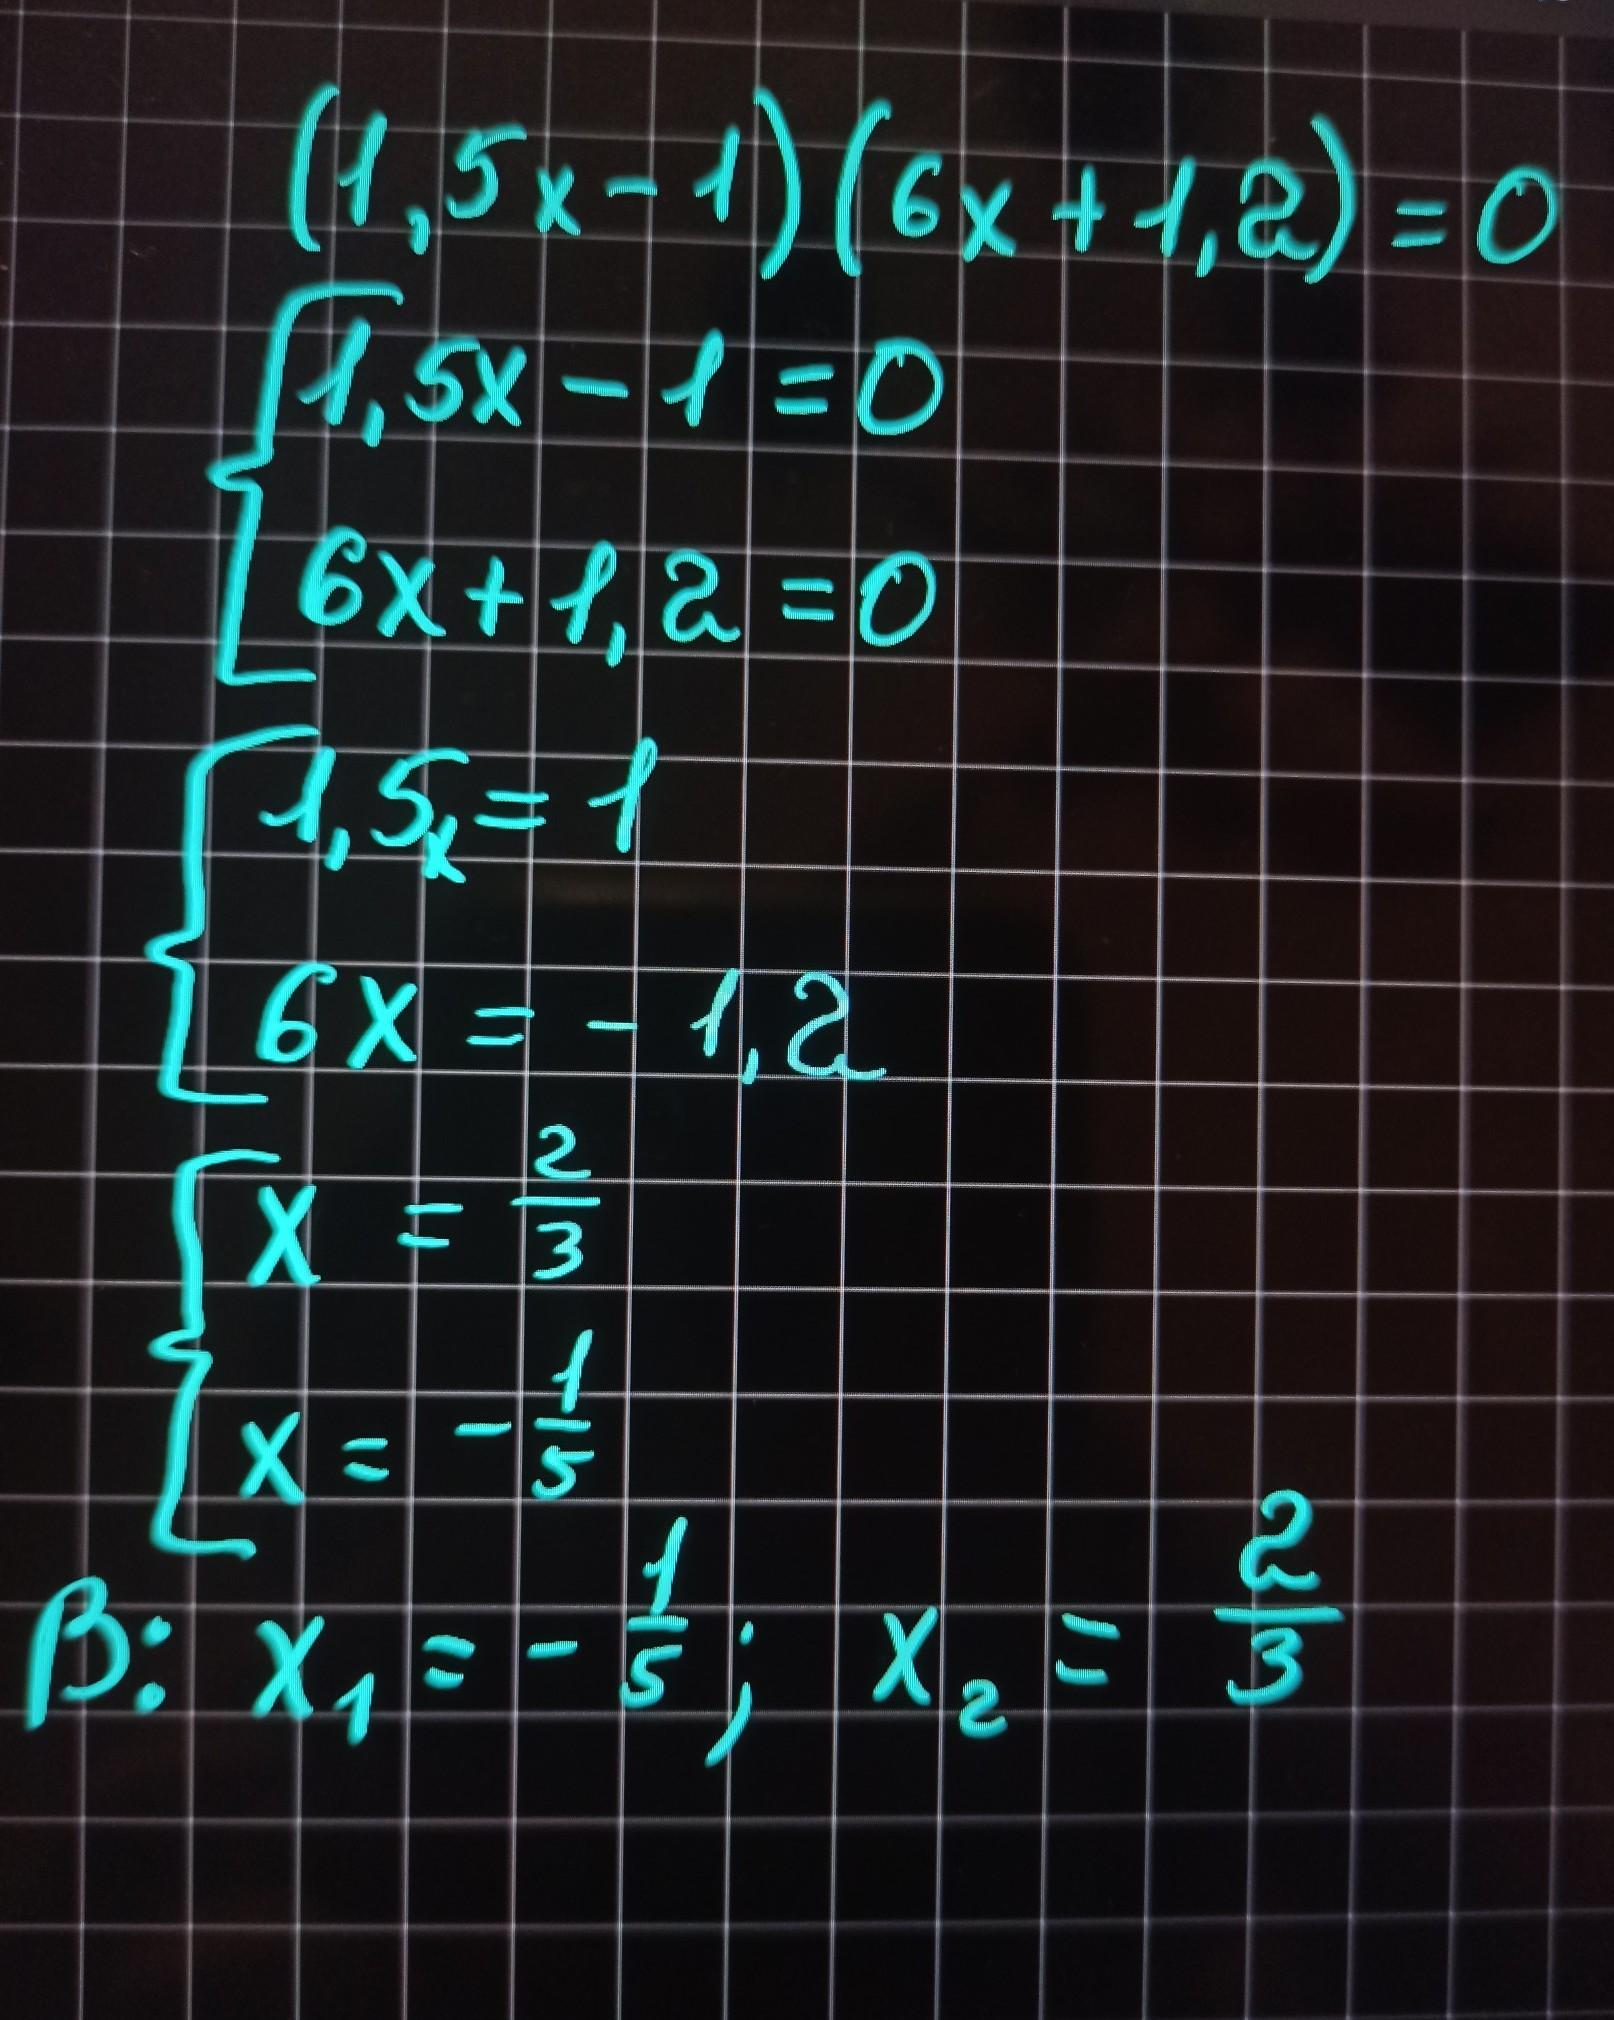 (1,5x-1)(6x+1,2)=0
1,5x-1=0
6x+1,2=0
1,5x=1
6x=-1,2
x=2/3
x=-1/5
В: x₁=-1/5; x₂=2/3